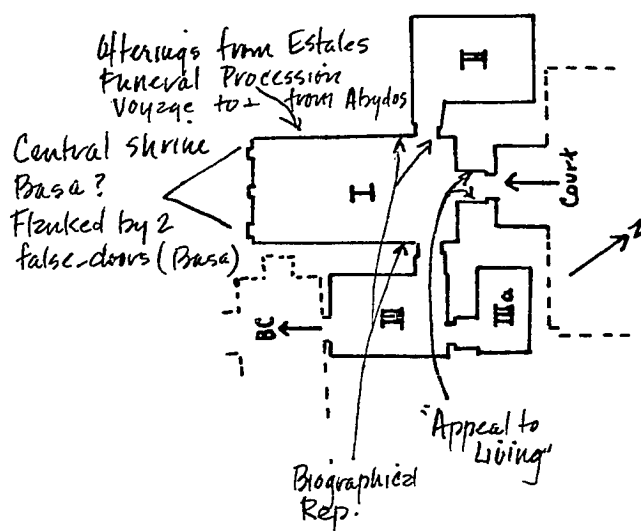 Offerings from Estates
Funeral Procession
Voyage to + from Abydos
Central shrine
Basa?
Flanked by 2
false-doors (Basa)
II
I
Court
N
III
IIIa
BC
"Appeal to
Living"
Biographical
Rep.